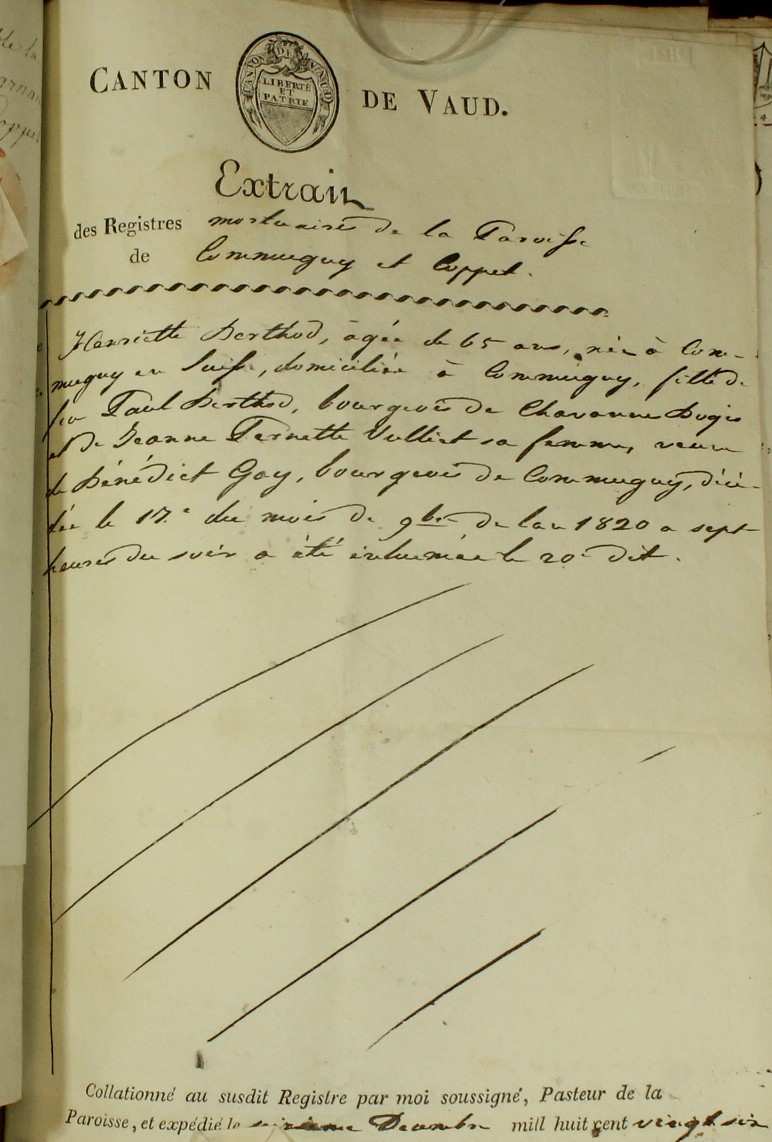 CANTON DE VAUD.
CANTON DE VAUD
LIBERTÉ
ET
PATRIE
Extrait
des Registres mortuaires de la Paroisse
de Commugny et Coppet.
Henriette Berthod, âgée de 65 ans, née à Com-
mugny en Suisse, domiciliée à Commugny, fille de
feu Paul Berthod, bourgeois de Chavannes Bogis
et de Jeanne Pernette Vulliet sa femme, veuve
de Bénédict Goy, bourgeois de Commugny, décé-
dée le 17.e du mois de 9bre de l'an 1820 a sept
heures du soir a été inhumée le 20e dit.
Collationné au susdit Registre par moi soussigné, Pasteur de la
Paroisse, et expédié le Décembre mill huit cent vingt six